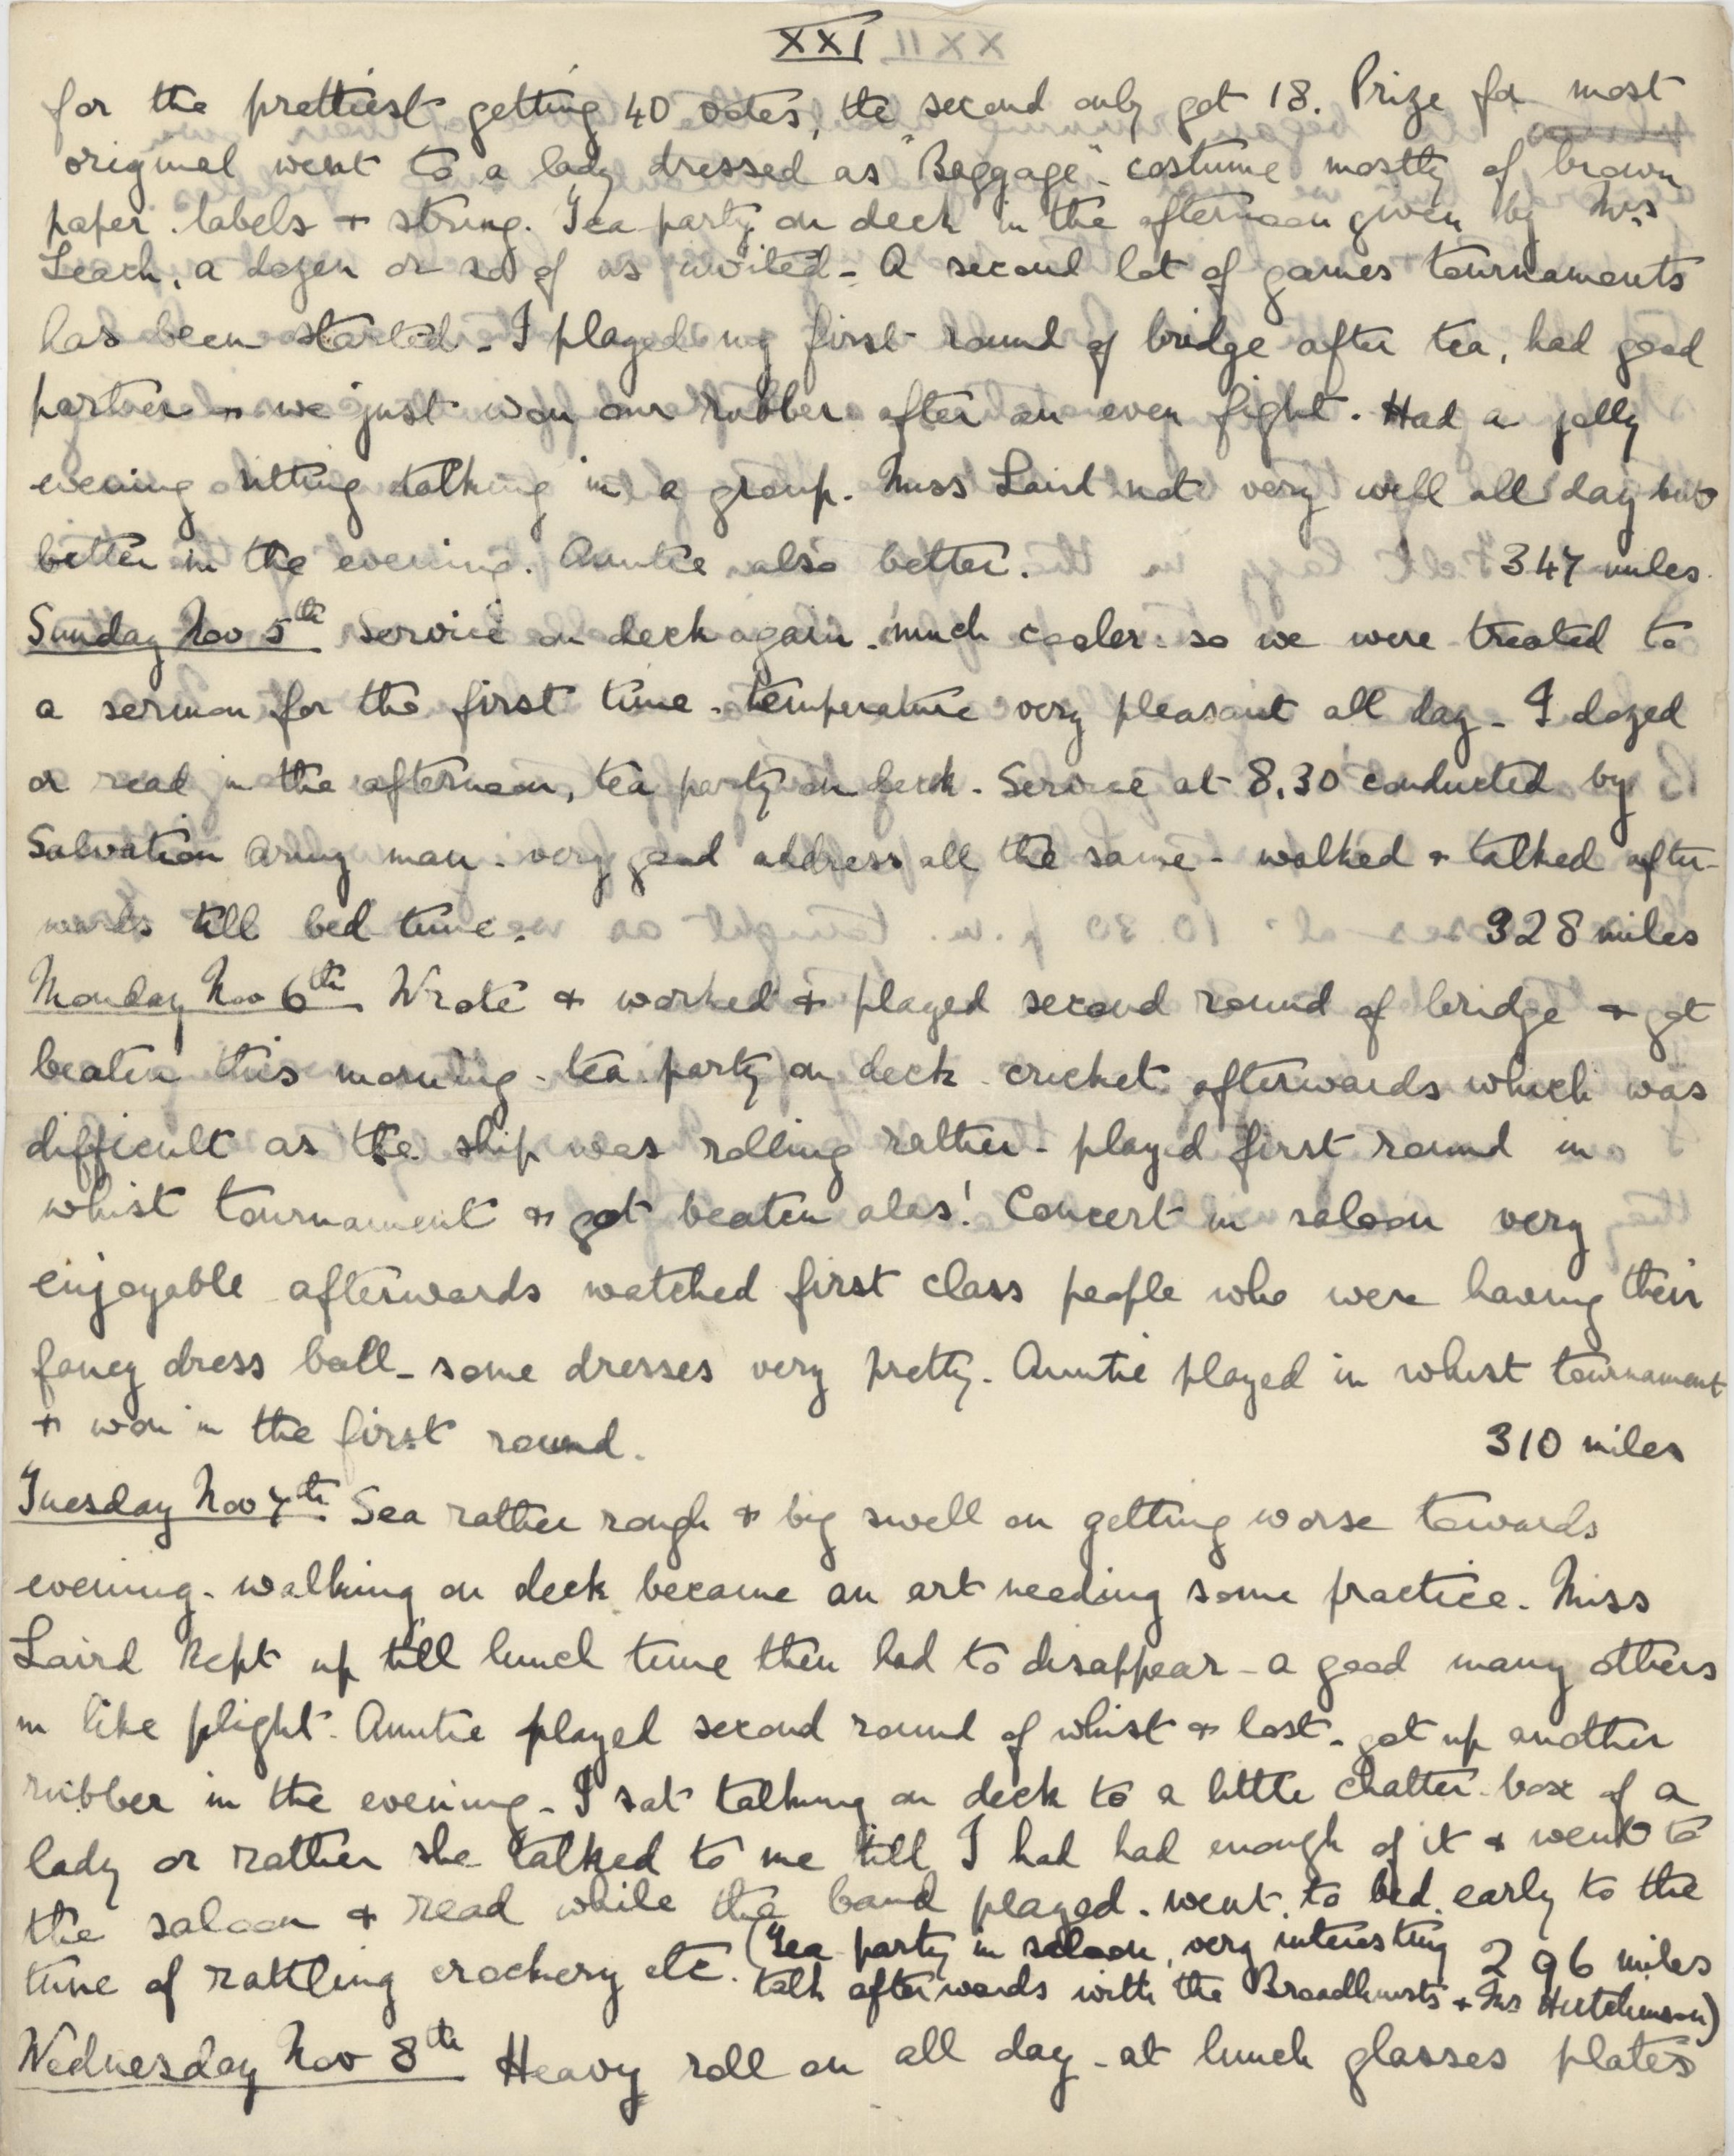 XXI
for the prettiest getting 40 votes, the second only got 18. Prize for most
original went to a lady dressed as "Baggage" - costume mostly of brown
paper labels + string. Tea party on deck in the afternoon given by Mrs
Leach, a dozen or so of us invited - A second lot of games tournaments
has been started - I played my first round of bridge after tea, had good
partner + we just won our rubber after an even fight. Had a jolly
evening sitting talking in a group. Miss Laird not very well all day but
better in the evening. Auntie also better. 347 miles.
Sunday Nov 5th Service on deck again. much cooler so we were treated to
a sermon for the first time - temperature very pleasant all day - I dozed
or read in the afternoon, tea party on deck - Service at 8.30 conducted by
Salvation Army man - very good address all the same - walked + talked after-
wards till bed time. 328 miles
Monday Nov 6th Wrote + worked + played second round of bridge + got
beaten this morning - tea party on deck - cricket afterwards which was
difficult as the ship was rolling rather - played first round in
whist tournament + got beaten alas! Concert in saloon very
enjoyable afterwards watched first class people who were having their
fancy dress ball - some dresses very pretty - Auntie played in whist tournament
+ won in the first round. 310 miles
Tuesday Nov 7th Sea rather rough + big swell on getting worse towards
evening - walking on deck became an art needing some practice. Miss
Laird kept up till lunch time then had to disappear - a good many others
in like plight. Auntie played second round of whist + lost - got up another
rubber in the evening - I sat talking on deck to a little chatter-box of a
lady or rather she talked to me till I had had enough of it + went to
the saloon + read while the band played. went to bed early to the
tune of rattling crockery etc. (Tea party in saloon, very interesting 296 miles
talk afterwards with the Broadhursts + Mrs Hutchinson)
Wednesday Nov 8th Heavy roll on all day - at lunch glasses plates